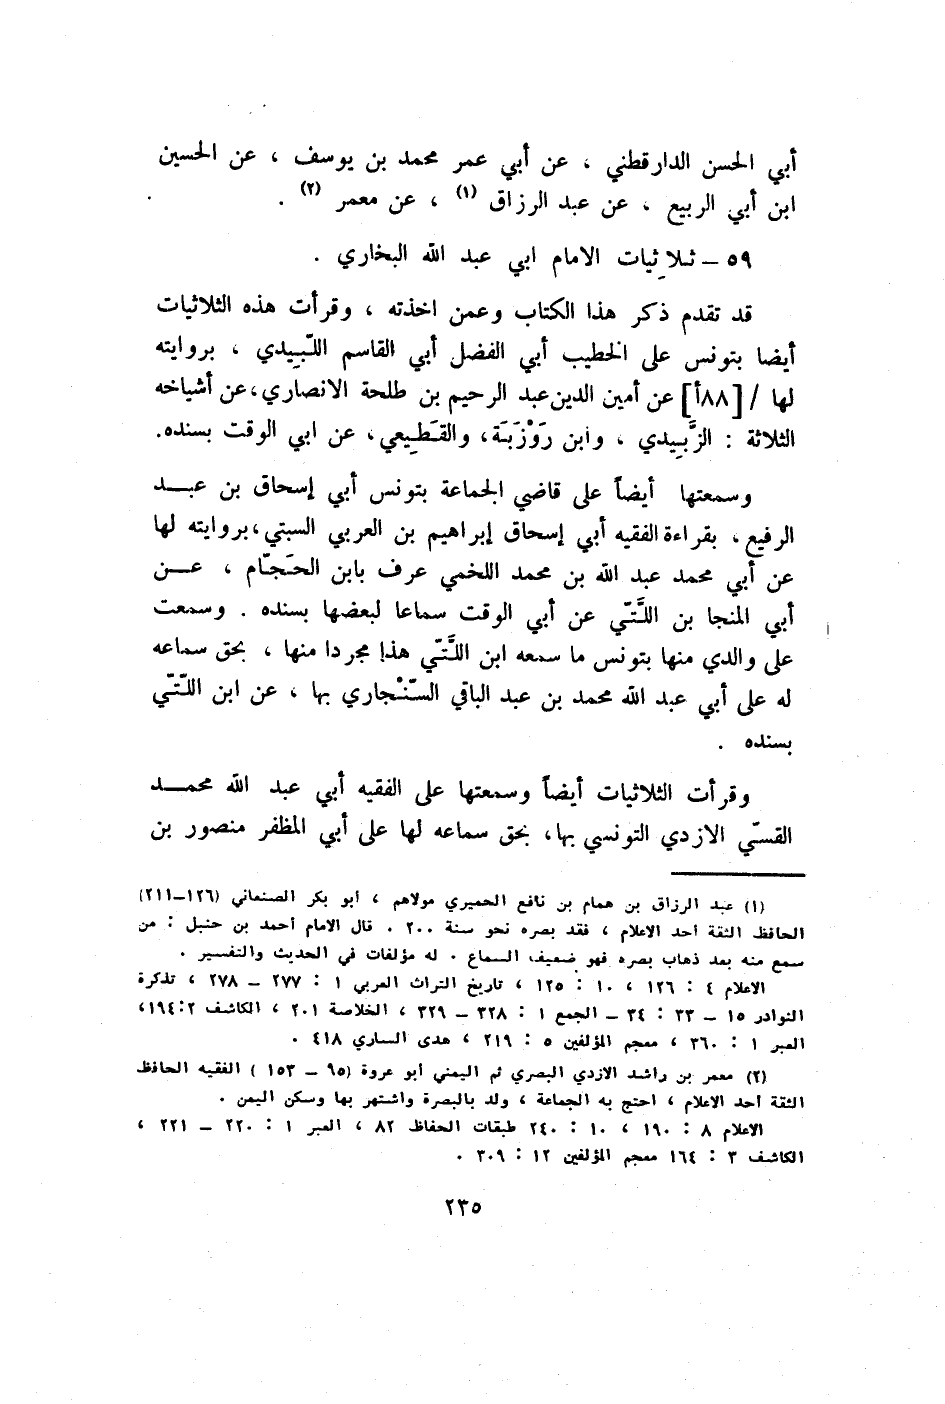 أبي الحسن الدارقطني ، عن أبي عمر محمد بن يوسف ، عن الحسين
ابن أبي الربيع ، عن عبد الرزاق (١) ، عن معمر (٢) .
٥٩ – ثلاثيات الامام ابي عبد الله البخاري .
قد تقدم ذكر هذا الكتاب وعمن اخذته ، وقرأت هذه الثلاثيات
أيضا بتونس على الخطيب أبي الفضل أبي القاسم اللَّبِيدي ، بروايته
لها / [٨٨أ] عن أمين الدين عبد الرحيم بن طلحة الانصاري، عن أشياخه
الثلاثة : الزَّبِيدي ، وابن رَوْزَبَة، والقَطِيعي، عن ابي الوقت بسنده.
وسمعتها أيضاً على قاضي الجماعة بتونس أبي إسحاق بن عبـــد
الرفيع، بقراءة الفقيه أبي إسحاق إبراهيم بن العربي السبتي، بروايته لها
عن أبي محمد عبد الله بن محمد اللخمي عرف بابن الحَجّام ، عـــن
أبي المنجا بن اللَّتّي عن أبي الوقت سماعا لبعضها بسنده . وسمعت
على والدي منها بتونس ما سمعه ابن اللَّتّي هذا مجردا منها ، بحق سماعه
له على أبي عبد الله محمد بن عبد الباقي السّنْجاري بها ، عن ابن اللّتّي
بسنده .
وقرأت الثلاثيات أيضاً وسمعتها على الفقيه أبي عبد الله محمـــد
القسّي الازدي التونسي بها، بحق سماعه لها على أبي المظفر منصور بن
(١) عبد الرزاق بن همام بن نافع الحميري مولاهم ، أبو بكر الصنعاني (١٢٦–٢١١)
الحافظ الثقة أحد الاعلام ، فقد بصره نحو سنة ٢٠٠ . قال الامام أحمد بن حنبل : من
سمع منه بعد ذهاب بصره فهو ضعيف السماع . له مؤلفات في الحديث والتفسير .
الاعلام ٤ : ١٢٦ ، ١٠ : ١٢٥ ، تاريخ التراث العربي ١ : ٢٧٧ – ٢٧٨ ، تذكرة
النوادر ١٥ – ٣٣ : ٣٤ – الجمع ١ : ٣٢٨ – ٣٢٩ ، الخلاصة ٢٠١ ، الكاشف ٢ : ١٩٤،
العبر ١ : ٣٦٠ ، معجم المؤلفين ٥ : ٢١٩ ، هدى الساري ٤١٨ .
(٢) معمر بن راشد الازدي البصري ثم اليمني أبو عروة (٩٥ – ١٥٣ ) الفقيه الحافظ
الثقة أحد الاعلام ، احتج به الجماعة ، ولد بالبصرة واشتهر بها وسكن اليمن .
الاعلام ٨ : ١٩٠ ، ١٠ : ٢٤٠ طبقات الحفاظ ٨٢ ، العبر ١ : ٢٢٠ – ٢٢١ ،
الكاشف ٣ : ١٦٤ معجم المؤلفين ١٢ : ٣٠٩ .
٢٣٥